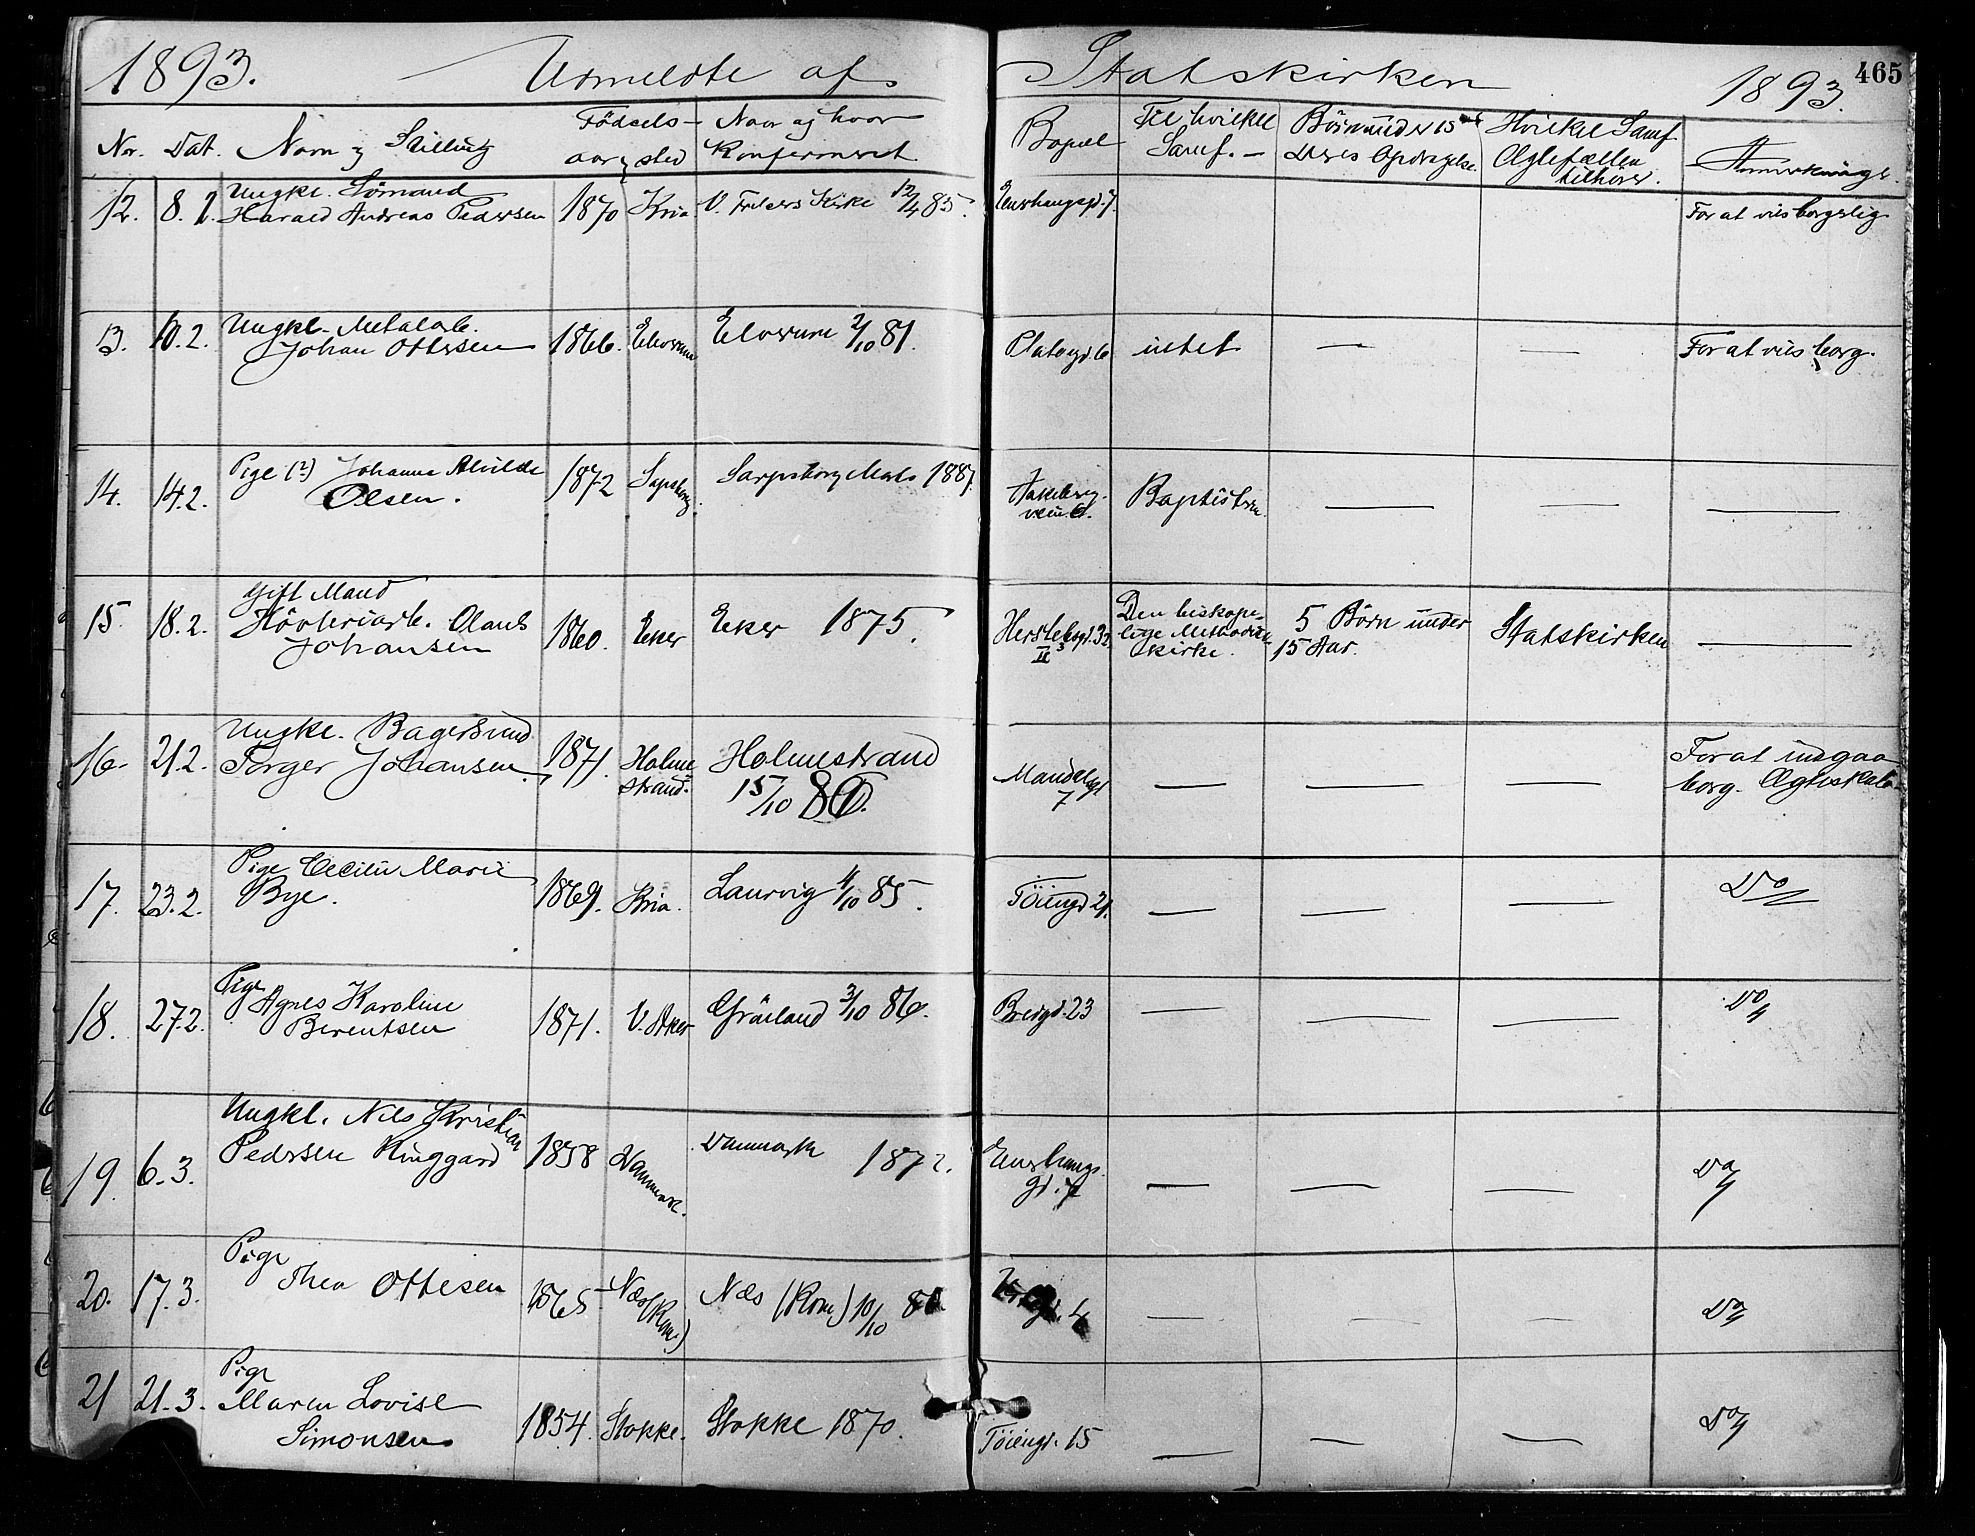 1893. Udmeldte af Statskirken 1893. 465
Nr. Dat. Navn og Stilling Födsels- aar og sted Naar og hvor Konfirmeret Bopæl Til hvilket Samf. Börn under 15 Aar Deres Opdragelse. Hvilket Samf. Ægtefællen tilhører. Anmærkninge.
Ungkl. Sömand
12. 8. 2. Harald Andreas Pedersen 1870 Kria V. Frikers Kirke 12/4 85. Enerhaugsgd. 7. For at vies borgerlig
Ungkl. Metalarb.
13. 10.2. Johan Ottersen 1866. Elverum Elverum 2/10 81. Platogd. 6 intet — — For at vies borg.
Pige (?) Johanna Alvilde
14. 14.2. Olsen. 1872 Sapsborg. Sarpsborg 1887. Hakeberg-
veien 6. Baptistern. — — —
Gift Mand
15. 18.2. Hövleriarb. Olaus
Johansen 1860. Eker Eker 1875. Herslebsgd. 33
II Den biskope-
lige Methodist-
kirke. 5 Börn under
15 Aar. Statskirken —
Ungkl. Bagersvend
16. 21.2. Torger Johansen. 1871. Holme
strand. Holmestrand
15/10 86. Mandalsgd
7 — — — For at indgaa
borg. Ægteskab.
Pige Cecilie Marie
17. 23.2. Bye. 1869. Kria. Laurvig 4/10 85. Töiengd 21. — — — Do
Pige
Agnes Karoline
18. 27.2. Berentsen 1871. V. Aker Grönland 3/10 86. Breigd. 23 — — — Do
Ungkl. Nils Kristian
19. 6.3. Pedersen Ringgard 1858 Danmark. Danmark 1872. Enerhaugs-
gd. 7 — — — Do
Pige
20. 17.3. Thea Ottesen 1865 Næs (Rom.) Næs (Rom) 10/10 — — — Do
Pige
21 21.3. Maren Lovise
Simonsen 1854. Stokke. Stokke 1870. Töiengd. 15 — — — Do